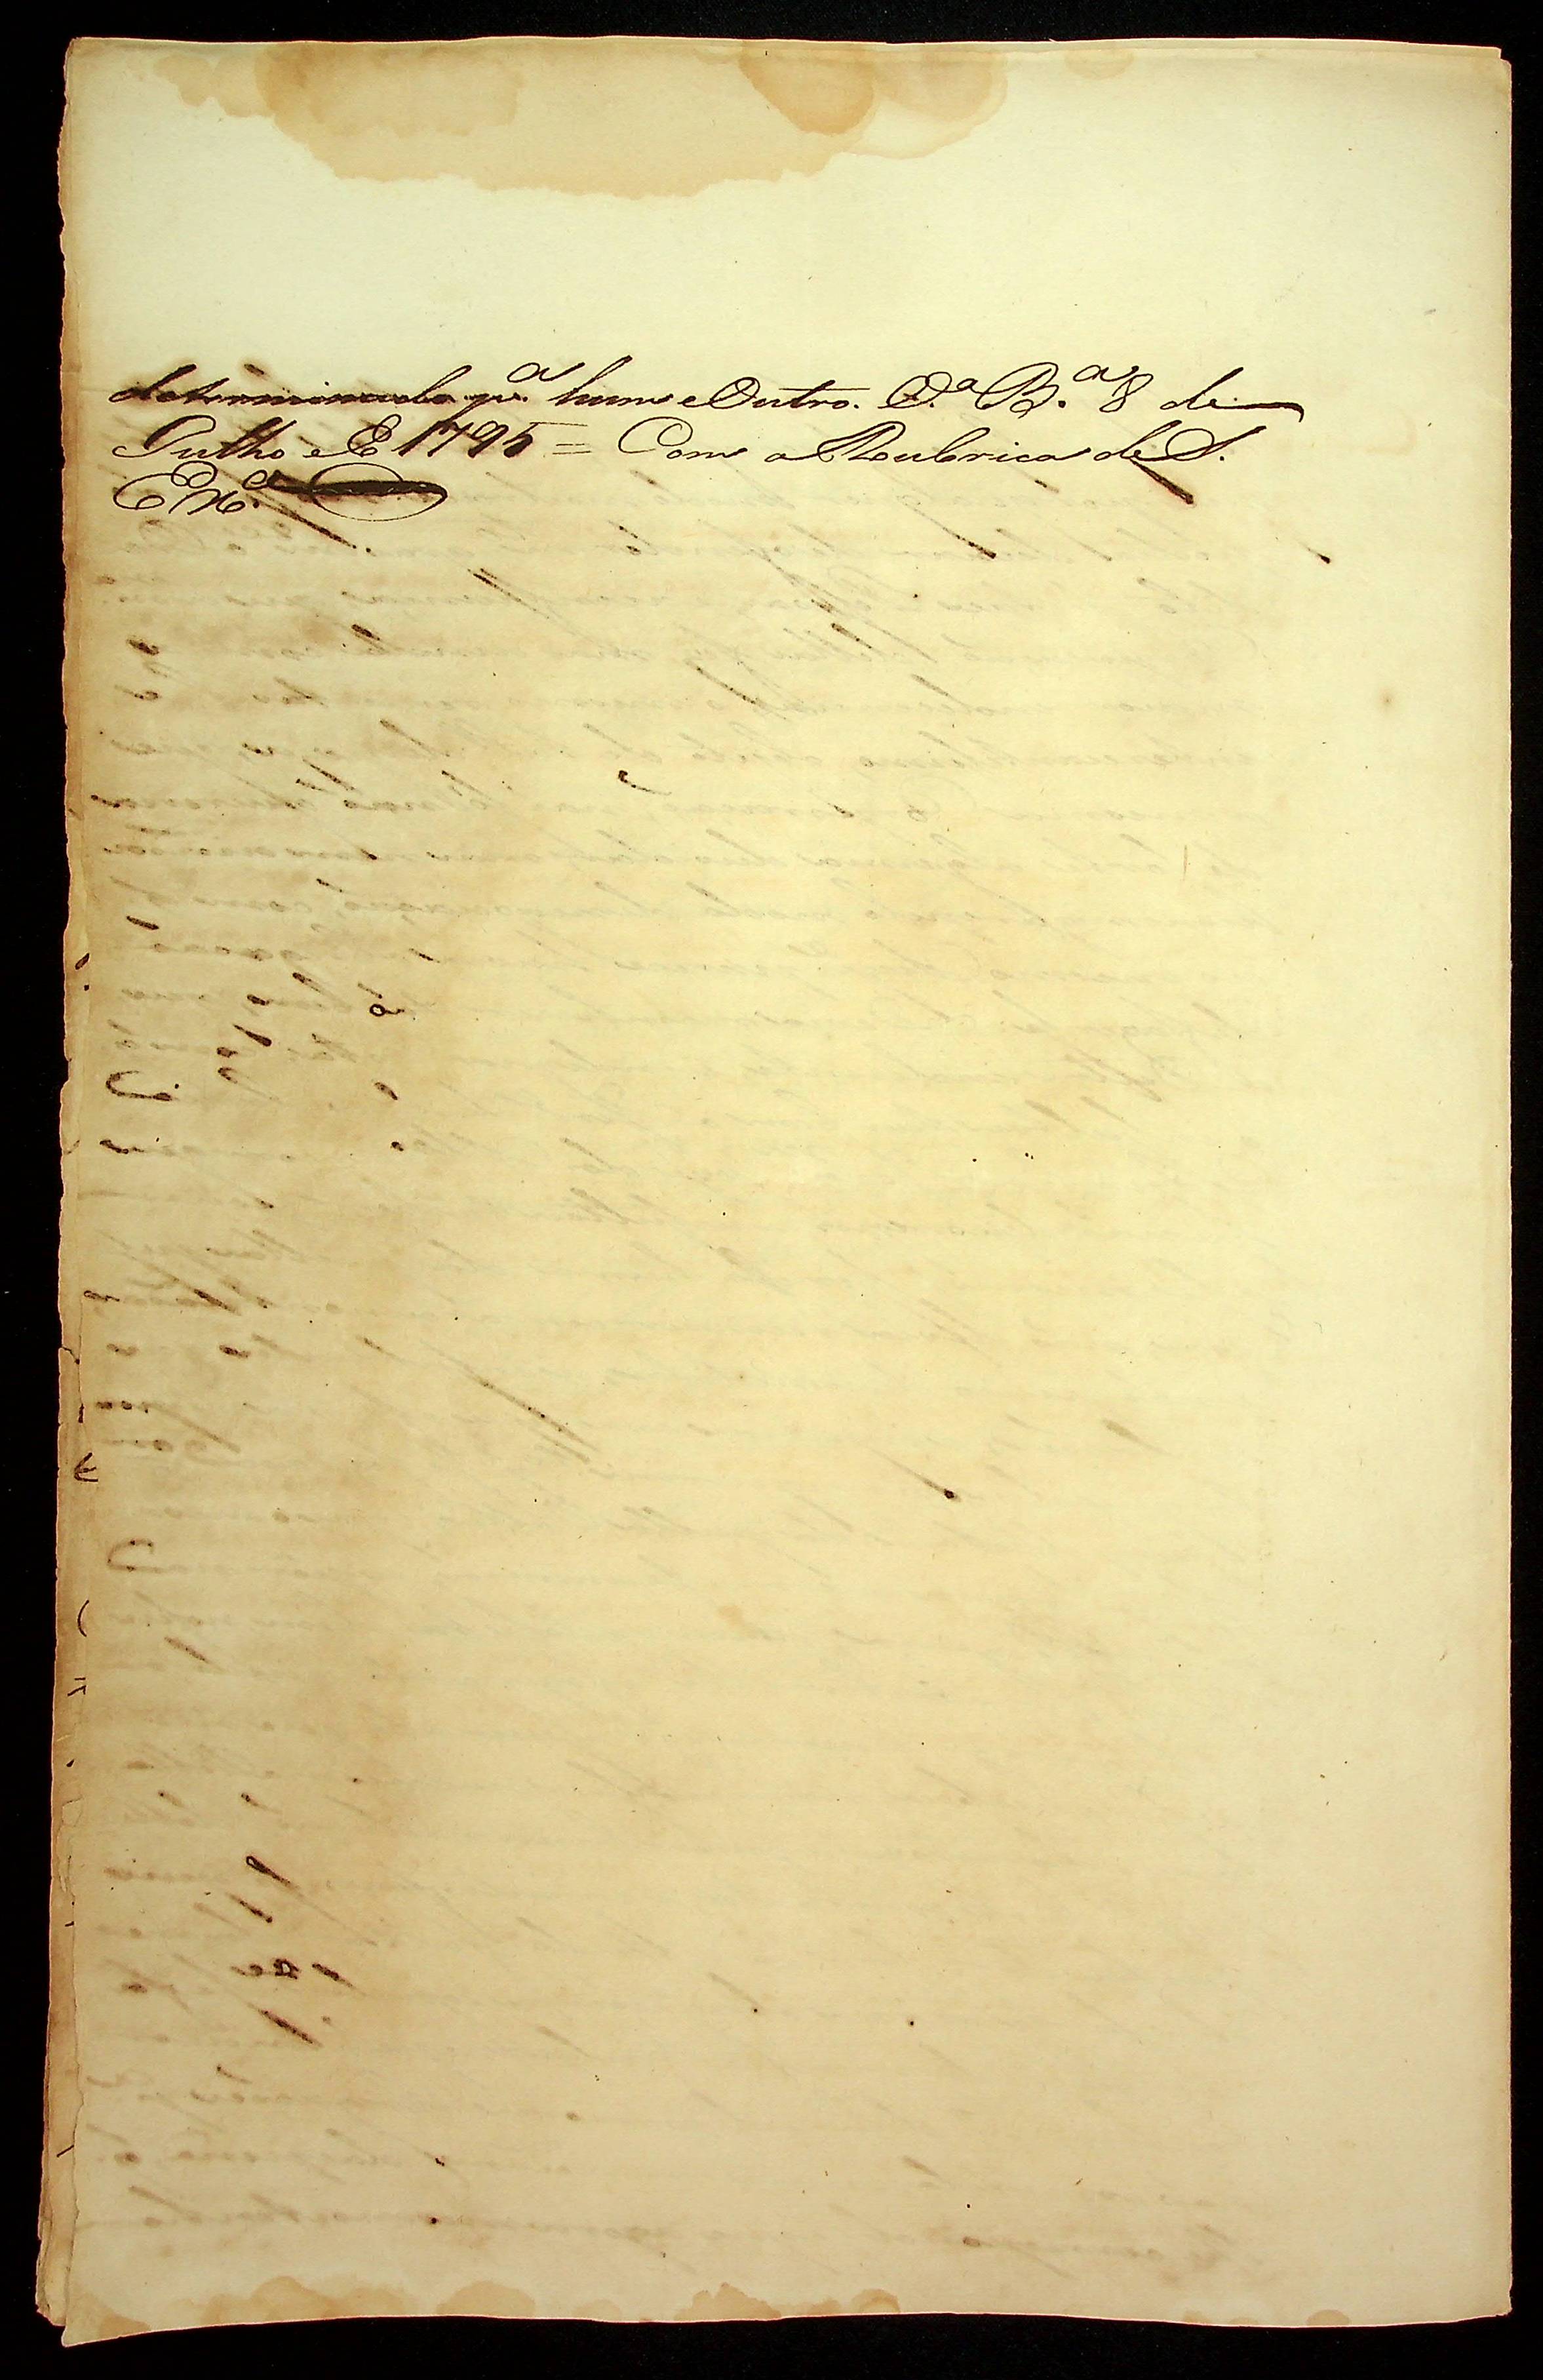 determinado p.ª hum e Outro. V.ª B.ª 8 de
Julho de 1795 = Com a Roubrica de S.
Ex.ª